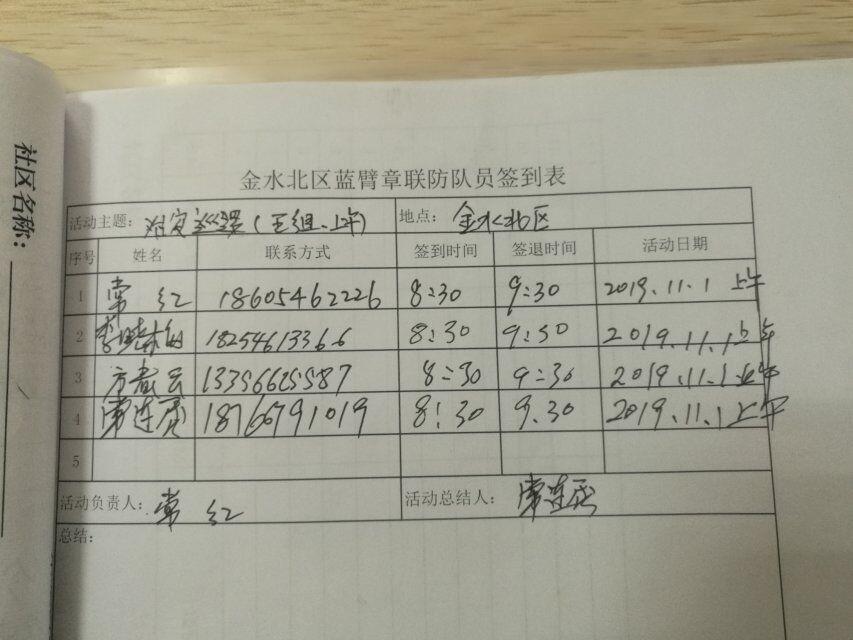 社区名称:
金水北区蓝臂章联防队员签到表
活动主题: 治安巡逻(五组、上午) 地点: 金水北区
序号 姓名 联系方式 签到时间 签退时间 活动日期
1 常红 18605462226 8:30 9:30 2019.11.1 上午
2 李晓 18254613366 8:30 9:30 2019.11.1上午
3 方 13356625587 8:30 9:30 2019.11.1上午
4 常连 18766791019 8:30 9.30 2019.11.1上午
5
活动负责人: 常红 活动总结人: 常连
总结: